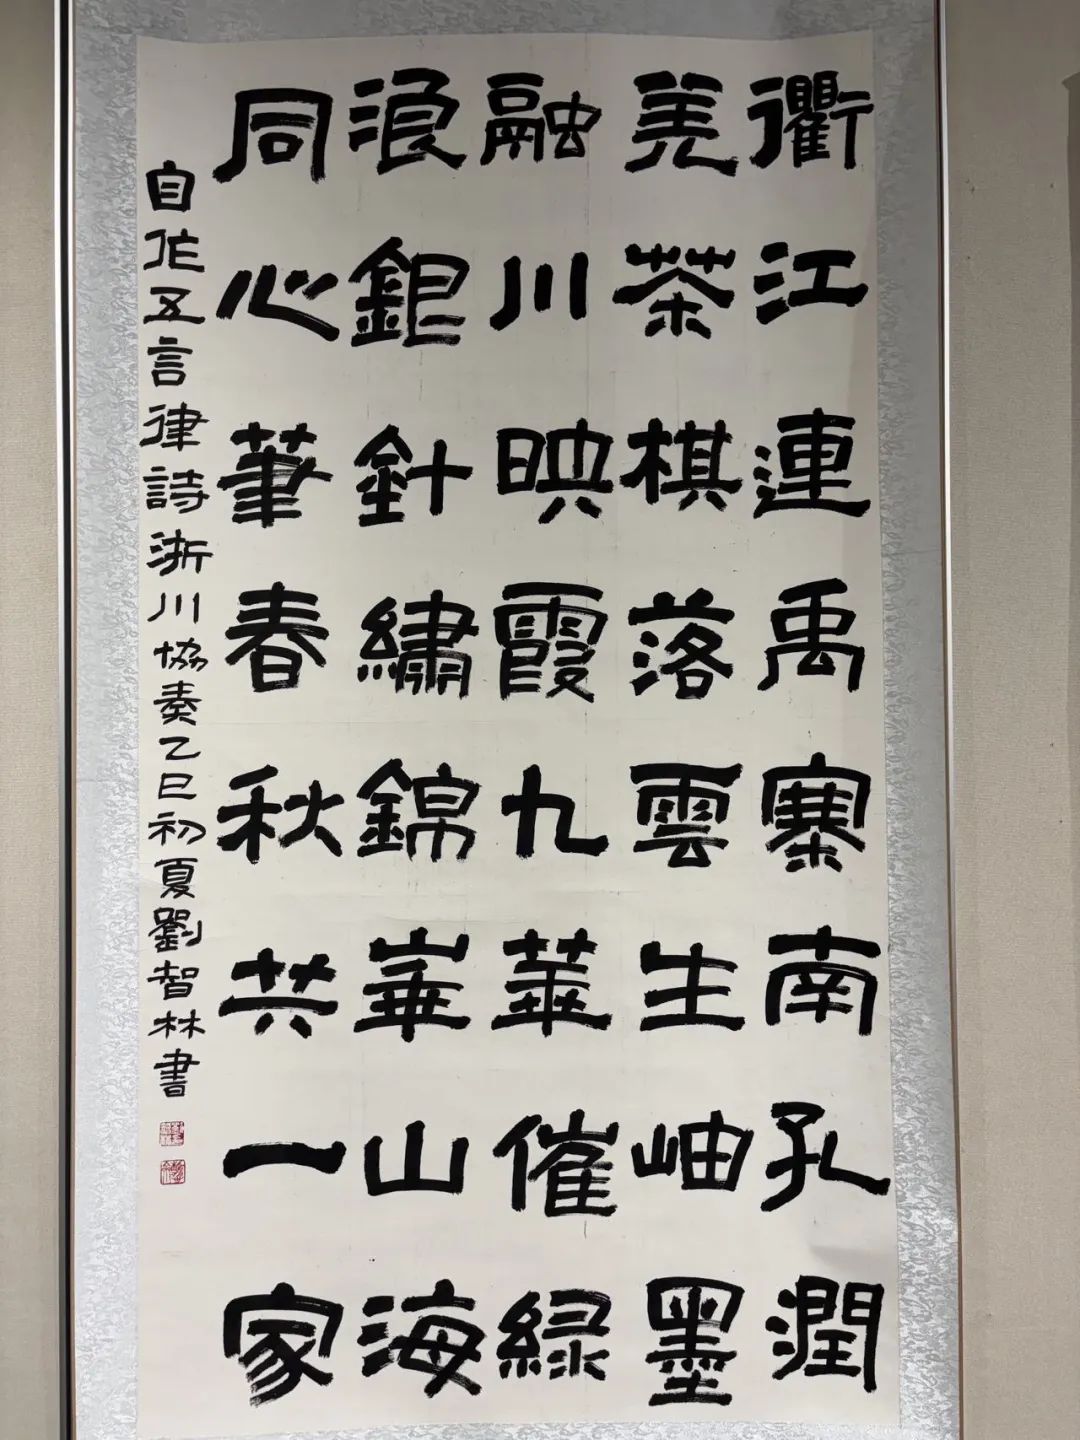 衢江連禹寨南孔潤
羌茶棋落雲生岫墨
融川映霞九華催緑
浪鉅針繡錦崋山海
同心筆春秋共一家
自作五言律詩浙川協奏乙巳初夏劉智林書